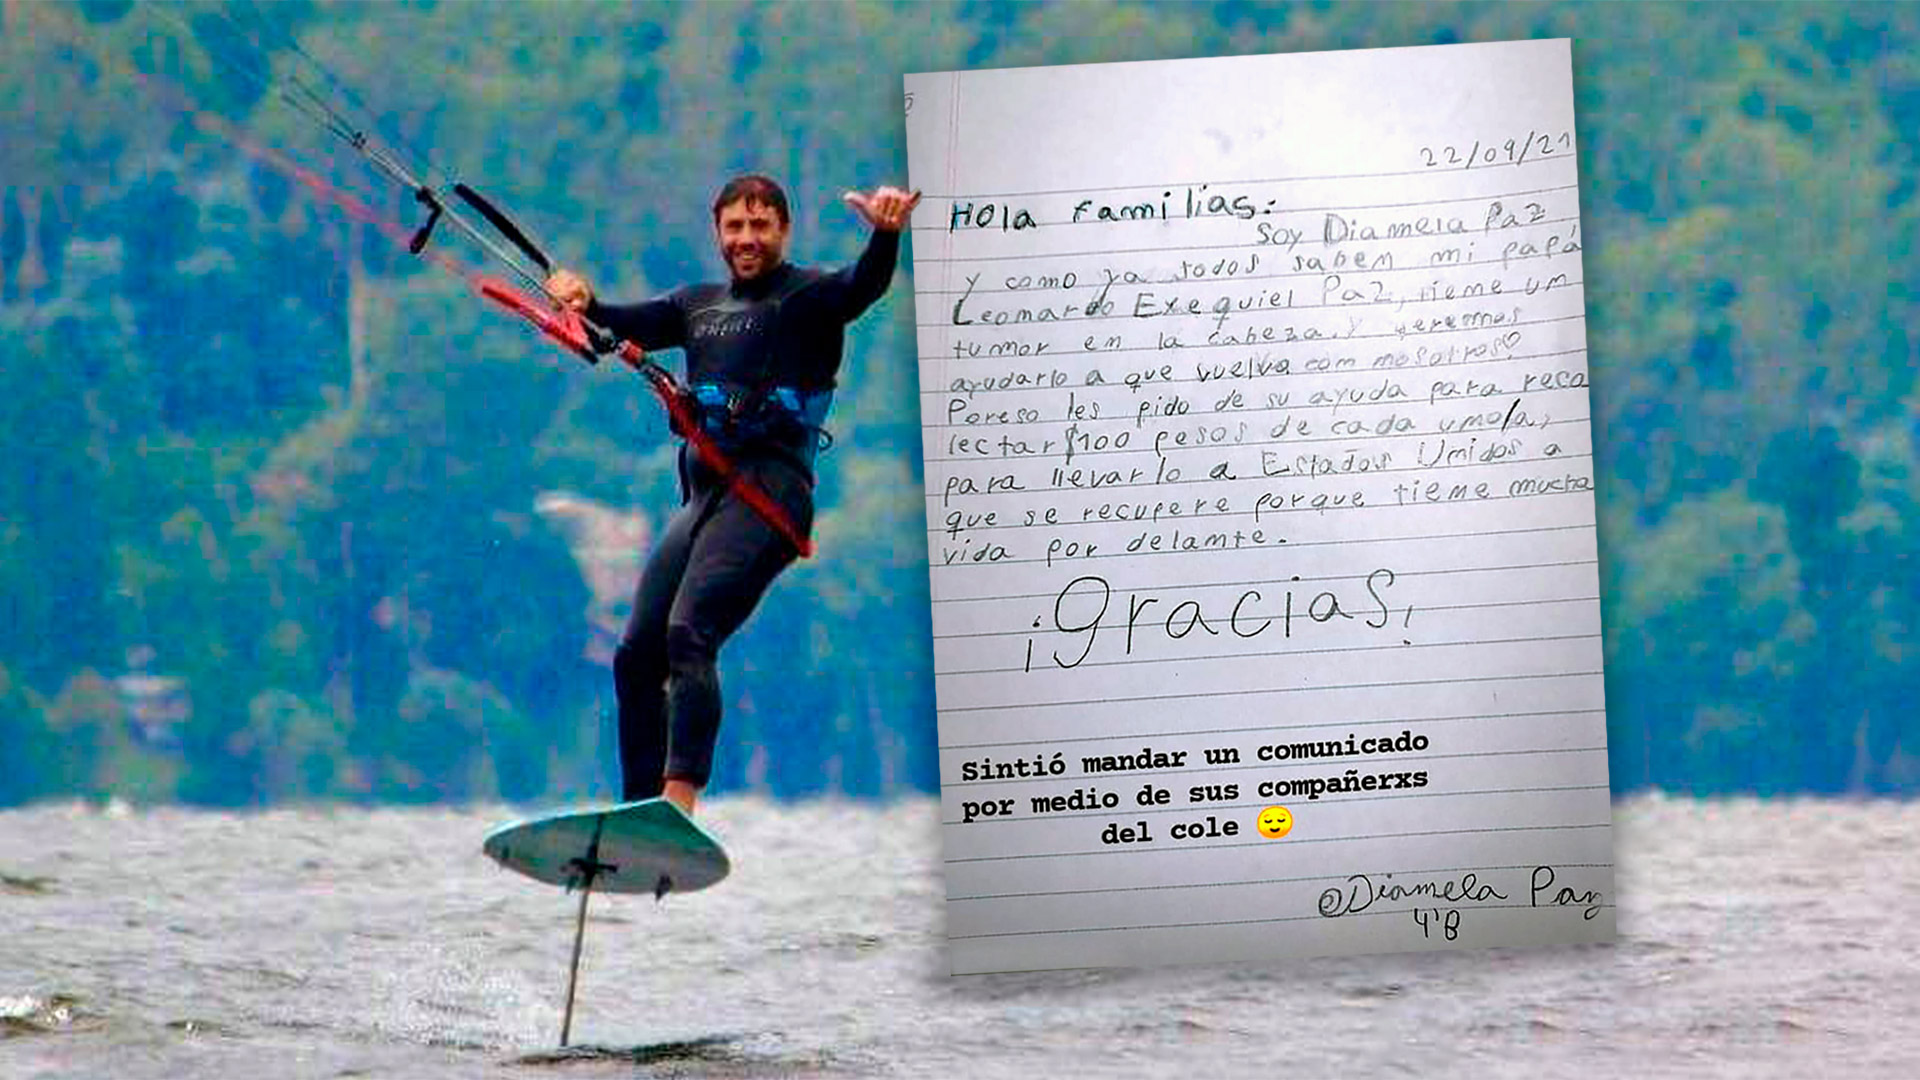 22/09/21
Hola familias:
Soy Diamela Paz
y como ya todos saben mi papá
Leonardo Exequiel Paz, tiene un
tumor en la cabeza. y queremos
ayudarlo a que vuelva con nosotros♡
Poreso les pido de su ayuda para reco
lectar $100 pesos de cada uno/a,
para llevarlo a Estados Unidos a
que se recupere porque tiene mucha
vida por delante.
¡Gracias!
Sintió mandar un comunicado
por medio de sus compañerxs
del cole 😌
@Diamela Paz
4'B
O'NEILL